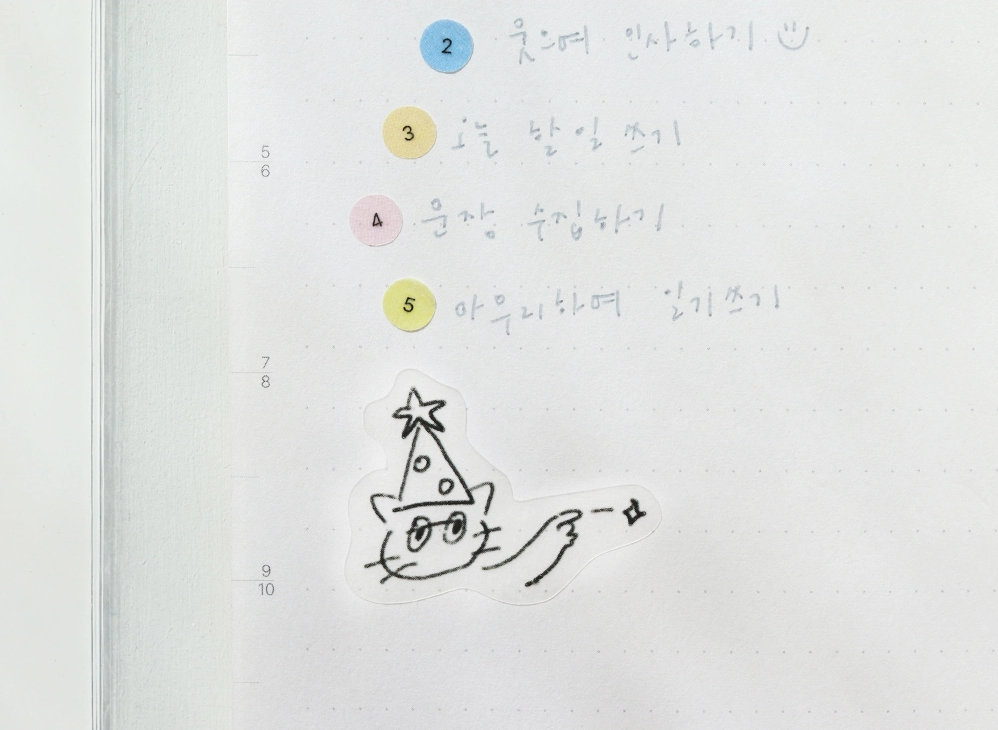 2 웃으며 인사하기
3 오늘 할 일 쓰기
5
6
4 문장 수집하기
5 마무리하며 일기쓰기
7
8
9
10